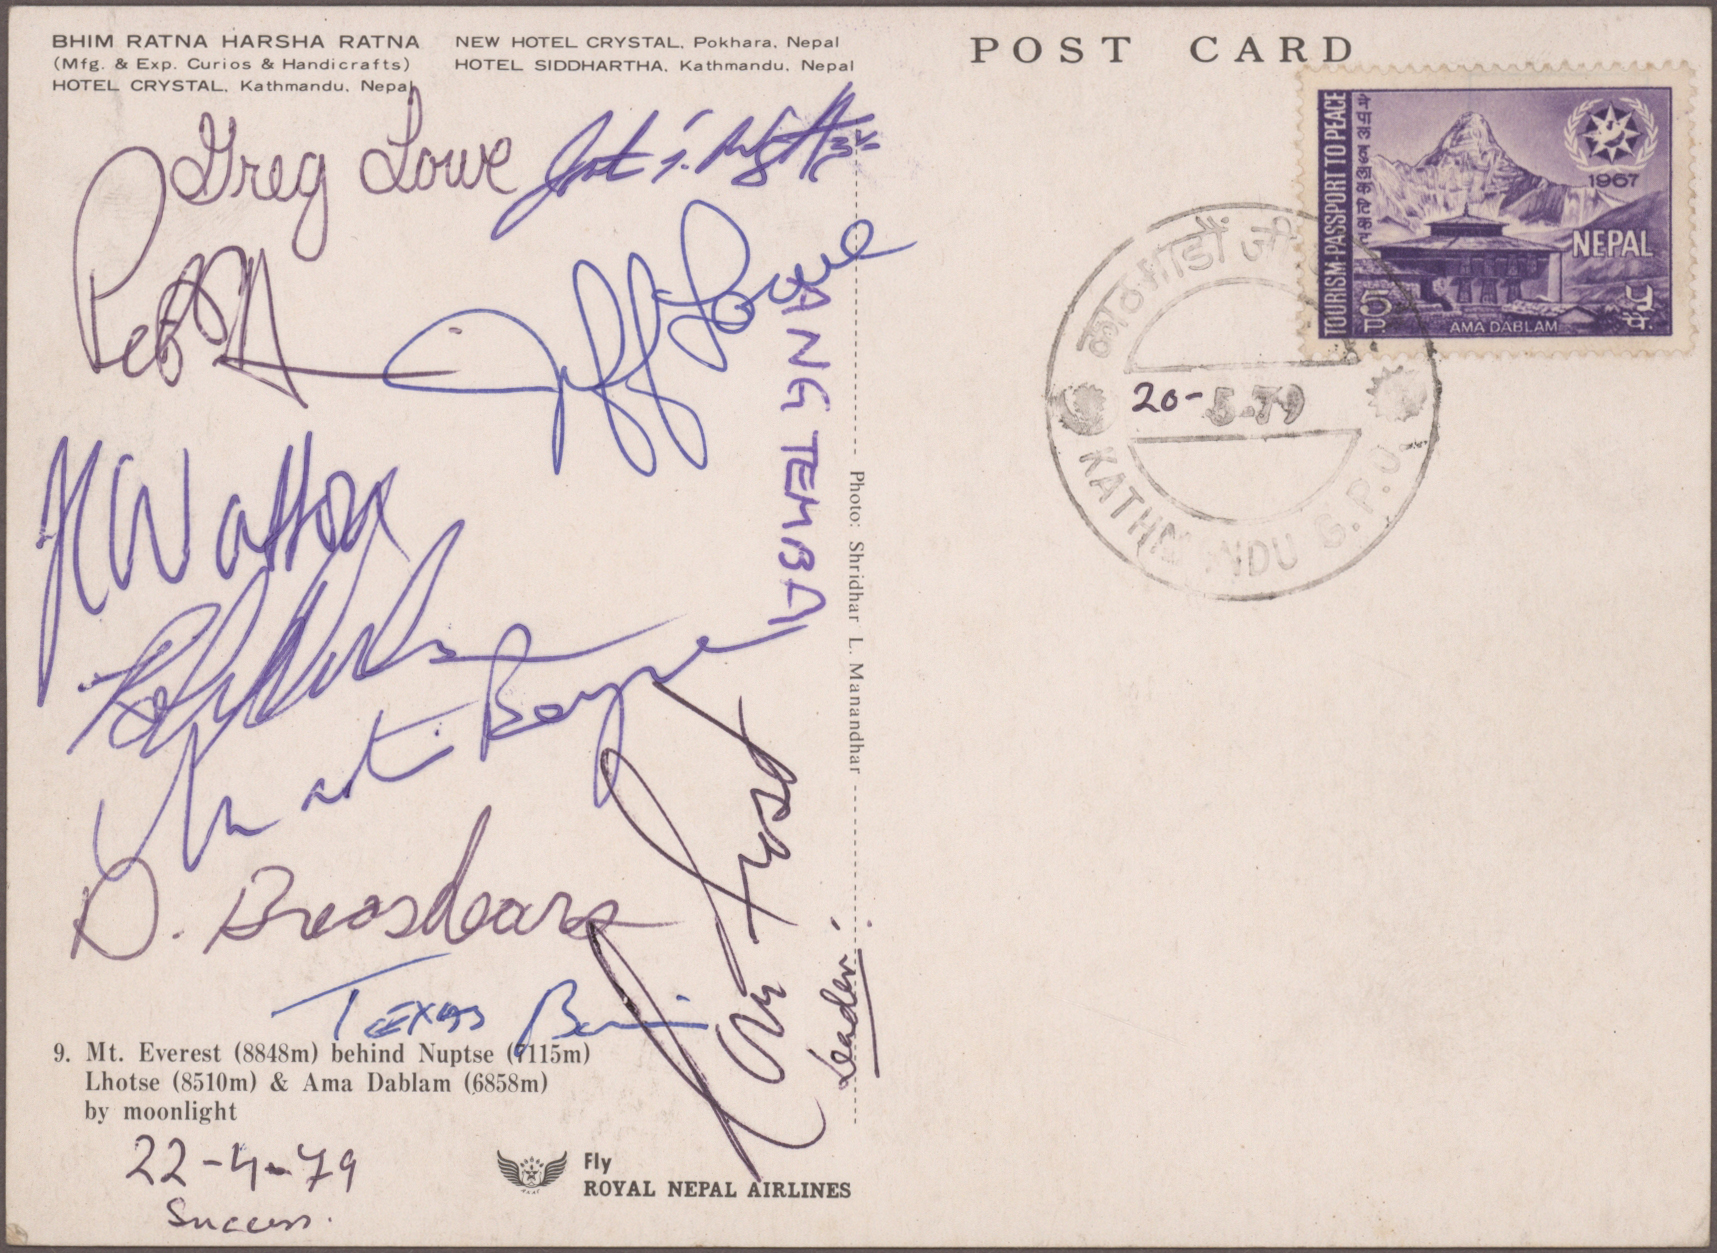 BHIM RATNA HARSHA RATNA
(Mfg. & Exp. Curios & Handicrafts)
HOTEL CRYSTAL, Kathmandu, Nepal
NEW HOTEL CRYSTAL, Pokhara, Nepal
HOTEL SIDDHARTHA, Kathmandu, Nepal
POST CARD
TOURISM-PASSPORT TO PEACE
1967
NEPAL
5 P
AMA DABLAM
काठमाडौं जी
20-5-79
KATHMANDU G.P.O.
Greg Lowe
Jeff Lowe
ANG TEMBA
Photo: Shridhar L. Manandhar
D. Breashears
Tom Frost
Leader.
TEXAS
9. Mt. Everest (8848m) behind Nuptse (7115m)
Lhotse (8510m) & Ama Dablam (6858m)
by moonlight
22-4-79
Success.
Fly
ROYAL NEPAL AIRLINES